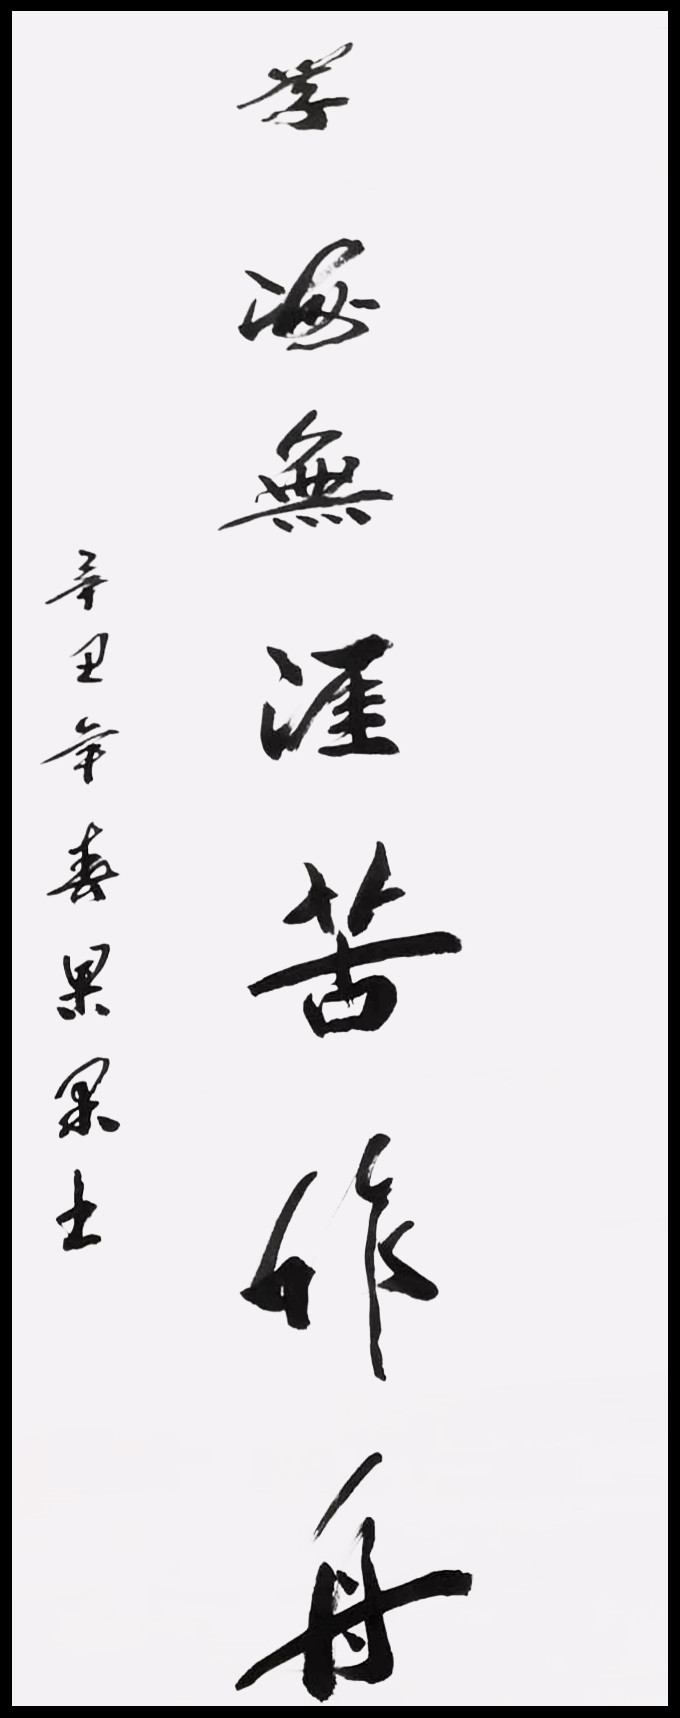 学海無涯苦作舟
辛丑年春果果土